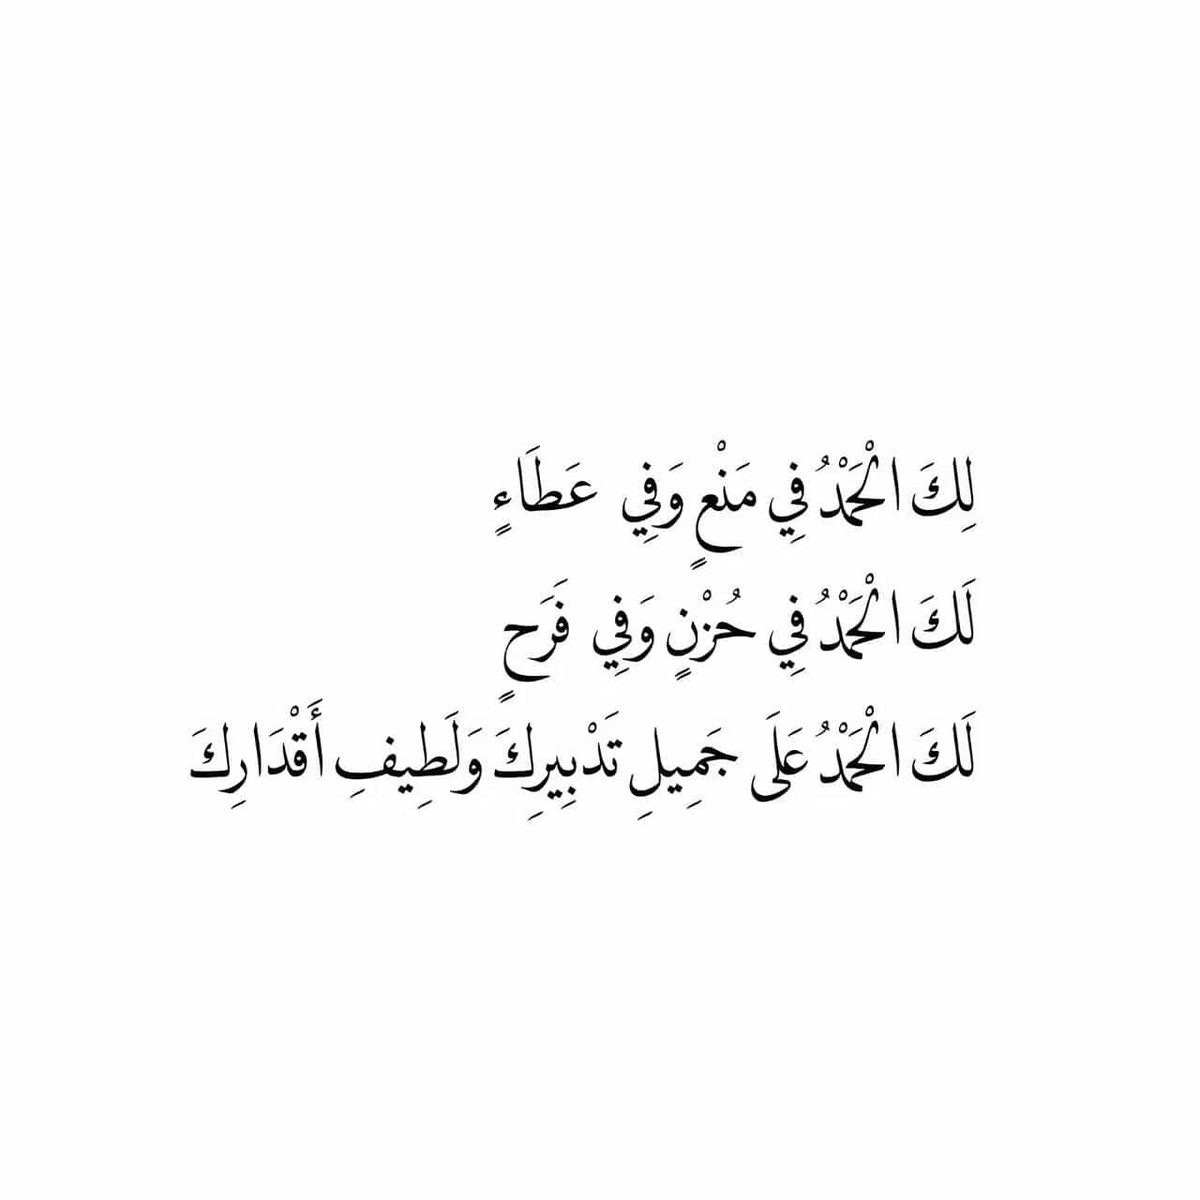 لِكَ الْحَمْدُ فِي مَنْعٍ وَفِي عَطَاءٍ
لَكَ الْحَمْدُ فِي حُزْنٍ وَفِي فَرَحٍ
لَكَ الْحَمْدُ عَلَى جَمِيلِ تَدْبِيرِكَ وَلَطِيفِ أَقْدَارِكَ